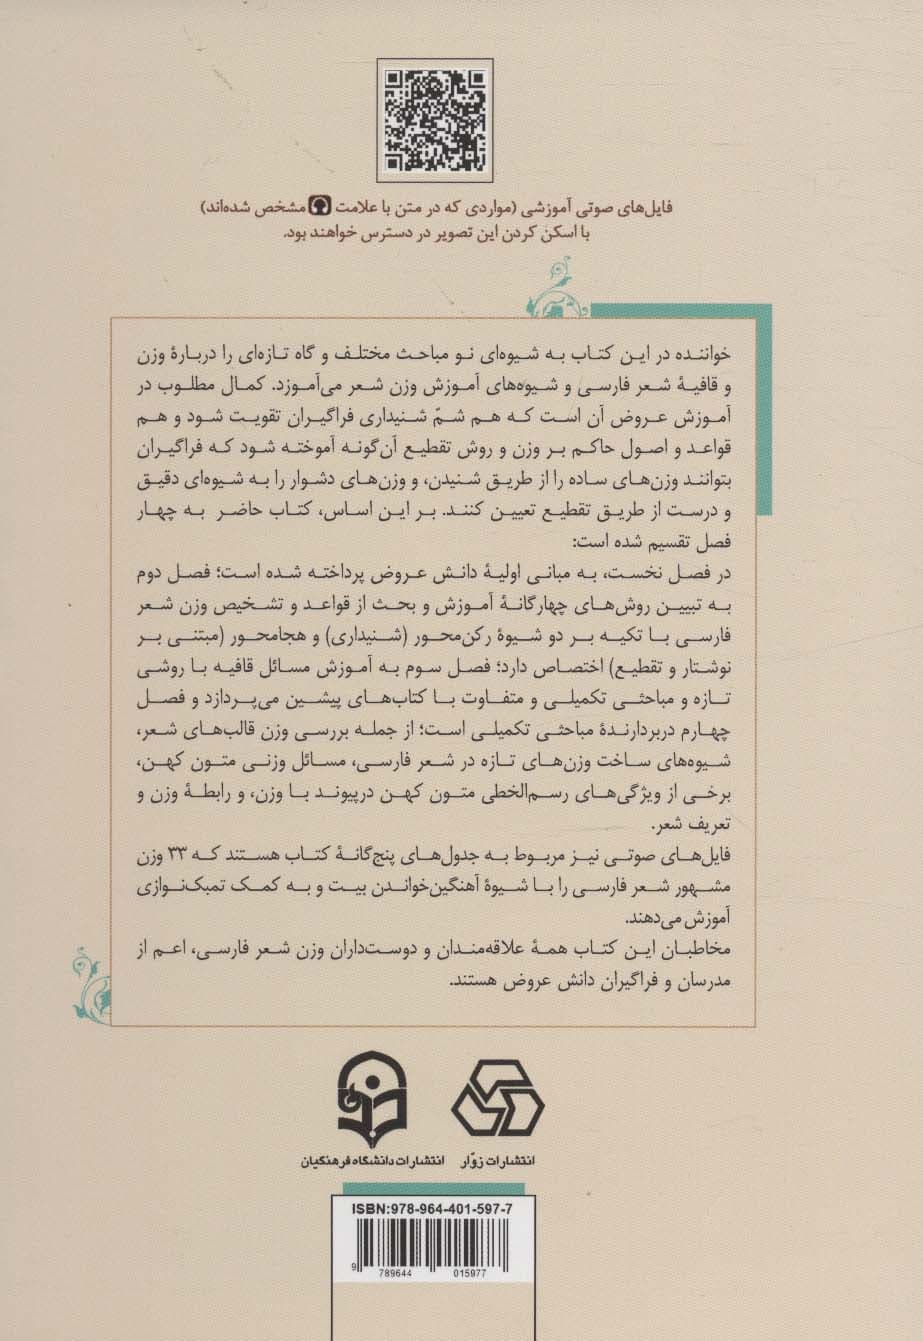 فایل‌های صوتی آموزشی (مواردی که در متن با علامت مشخص شده‌اند)
با اسکن کردن این تصویر در دسترس خواهند بود.
خواننده در این کتاب به شیوه‌ای نو مباحث مختلف و گاه تازه‌ای را دربارهٔ وزن
و قافیهٔ شعر فارسی و شیوه‌های آموزش وزن شعر می‌آموزد. کمال مطلوب در
آموزش عروض آن است که هم شمّ شنیداری فراگیران تقویت شود و هم
قواعد و اصول حاکم بر وزن و روش تقطیع آن‌گونه آموخته شود که فراگیران
بتوانند وزن‌های ساده را از طریق شنیدن، و وزن‌های دشوار را به شیوه‌ای دقیق
و درست از طریق تقطیع تعیین کنند. بر این اساس، کتاب حاضر به چهار
فصل تقسیم شده است:
در فصل نخست، به مبانی اولیهٔ دانش عروض پرداخته شده است؛ فصل دوم
به تبیین روش‌های چهارگانهٔ آموزش و بحث از قواعد و تشخیص وزن شعر
فارسی با تکیه بر دو شیوهٔ رکن‌محور (شنیداری) و هجامحور (مبتنی بر
نوشتار و تقطیع) اختصاص دارد؛ فصل سوم به آموزش مسائل قافیه با روشی
تازه و مباحثی تکمیلی و متفاوت با کتاب‌های پیشین می‌پردازد و فصل
چهارم دربردارندهٔ مباحثی تکمیلی است؛ از جمله بررسی وزن قالب‌های شعر،
شیوه‌های ساخت وزن‌های تازه در شعر فارسی، مسائل وزنی متون کهن،
برخی از ویژگی‌های رسم‌الخطی متون کهن درپیوند با وزن، و رابطهٔ وزن و
تعریف شعر.
فایل‌های صوتی نیز مربوط به جدول‌های پنج‌گانهٔ کتاب هستند که ۳۳ وزن
مشهور شعر فارسی را با شیوهٔ آهنگین‌خواندن بیت و به کمک تمبک‌نوازی
آموزش می‌دهند.
مخاطبان این کتاب همهٔ علاقه‌مندان و دوست‌داران وزن شعر فارسی، اعم از
مدرسان و فراگیران دانش عروض هستند.
انتشارات زوّار
انتشارات دانشگاه فرهنگیان
ISBN:978-964-401-597-7
9 789644 015977